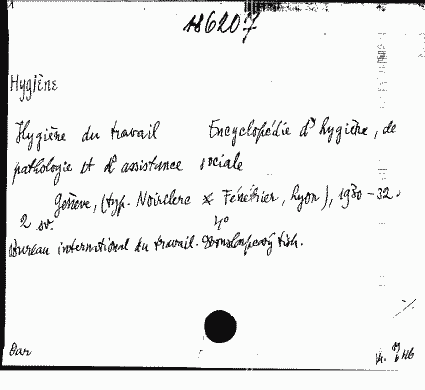 186207
Hygiène
Hygiène du travail Encyclopédie d'hygiène, de
pathologie et d'assistance sociale
Genève, (typ. Noirclerc & Fénétrier, Lyon), 1930-32.
2 sv. 4°
Bureau international du travail. Dvousloupcový tisk.
Dar